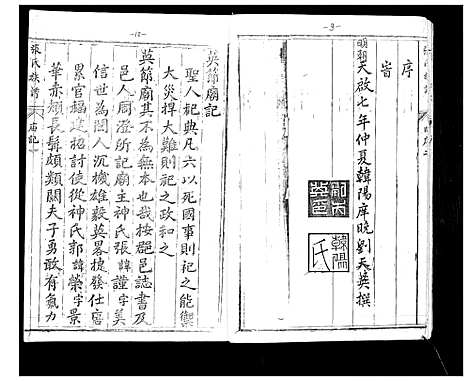 -9-
序
旹
明朝天啟七年仲夏韓陽岸曉劉天英撰
韓陽
氏
-10-
英節廟記
聖人祀典凡六以死國事則祀之能禦
大災捍大難則祀之政和之
英節廟其不為無本也哉按郡邑誌書及
邑人周澄所記廟主神氏張諱謹字美
信世為閩人沉機雄毅英畧捷發仕唐
累官福建招討使從神氏郭諱榮字景
華赤頰長髯頗類關夫子勇敢有氣力
張氏族譜
廟記